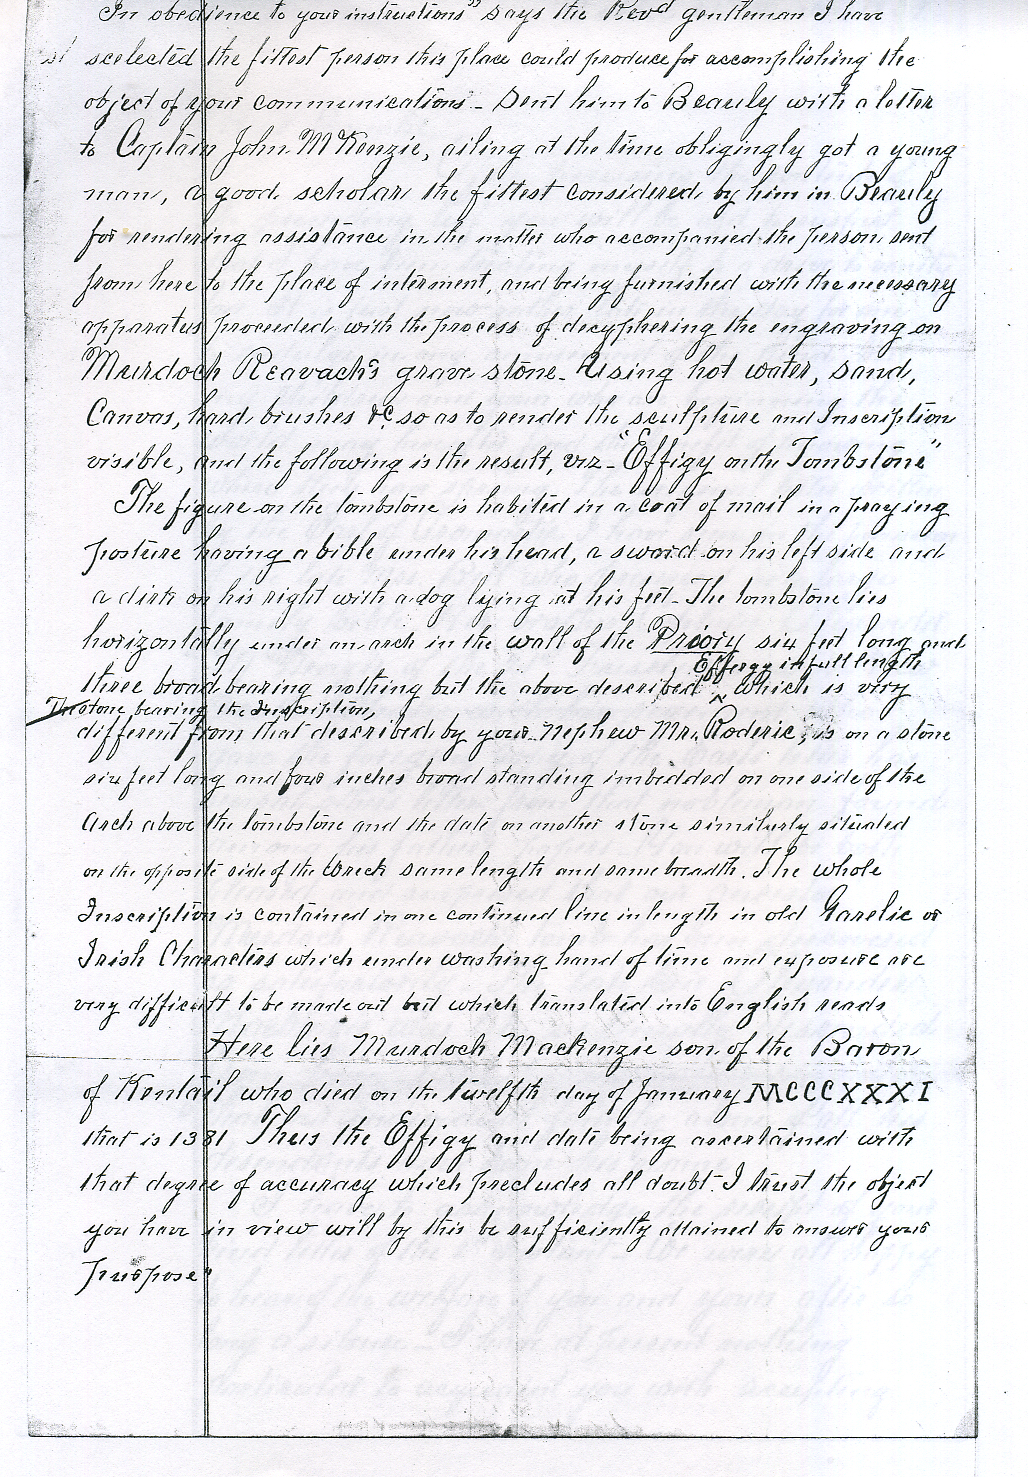 In obedience to your instructions" says the Revd gentleman I have
scelected the fittest person this place could produce for accomplishing the
object of your communications - Sent him to Beauly with a letter
to Captain John McKenzie, ailing at the time obligingly got a young
man, a good scholar the fittest considered by him in Beauly
for rendering assistance in the matter who accompanied the person sent
from here to the place of interment, and being furnished with the necessary
apparatus proceeded with the process of decyphering the engraving on
Murdoch Reavach's grave stone - Using hot water, sand,
Canvas, hard brushes &c so as to render the sculpture and Inscription
visible, and the following is the result, viz - "Effigy on the Tombstone"
The figure on the tombstone is habited in a coat of mail in a praying
posture having a bible under his head, a sword on his left side and
a dirk on his right with a dog lying at his feet - The tombstone lies
horizontally under an arch in the wall of the Priory six feet long and
Effergy in full length
three broad bearing nothing but the above described ^ which is very
The stone bearing the Inscription,
different from that described by your nephew Mr. Roderic, is on a stone
six feet long and four inches broad standing imbidded on one side of the
Arch above the tombstone and the date on another stone similarly situated
on the opposite side of the Wreck same length and same breadth. The whole
Inscription is contained in one continued line in length in old Gaelic or
Irish Characters which under washing hand of time and exposure are
very difficult to be made out but which translated into English reads
Here lies Murdoch Mackenzie son of the Baron
of Kentail who died on the twelfth day of January MCCCXXXI
that is 1381 Thus the Effigy and date being ascertained with
that degree of accuracy which precludes all doubt - I trust the object
you have in view will by this be sufficiently attained to answer your
purpose"